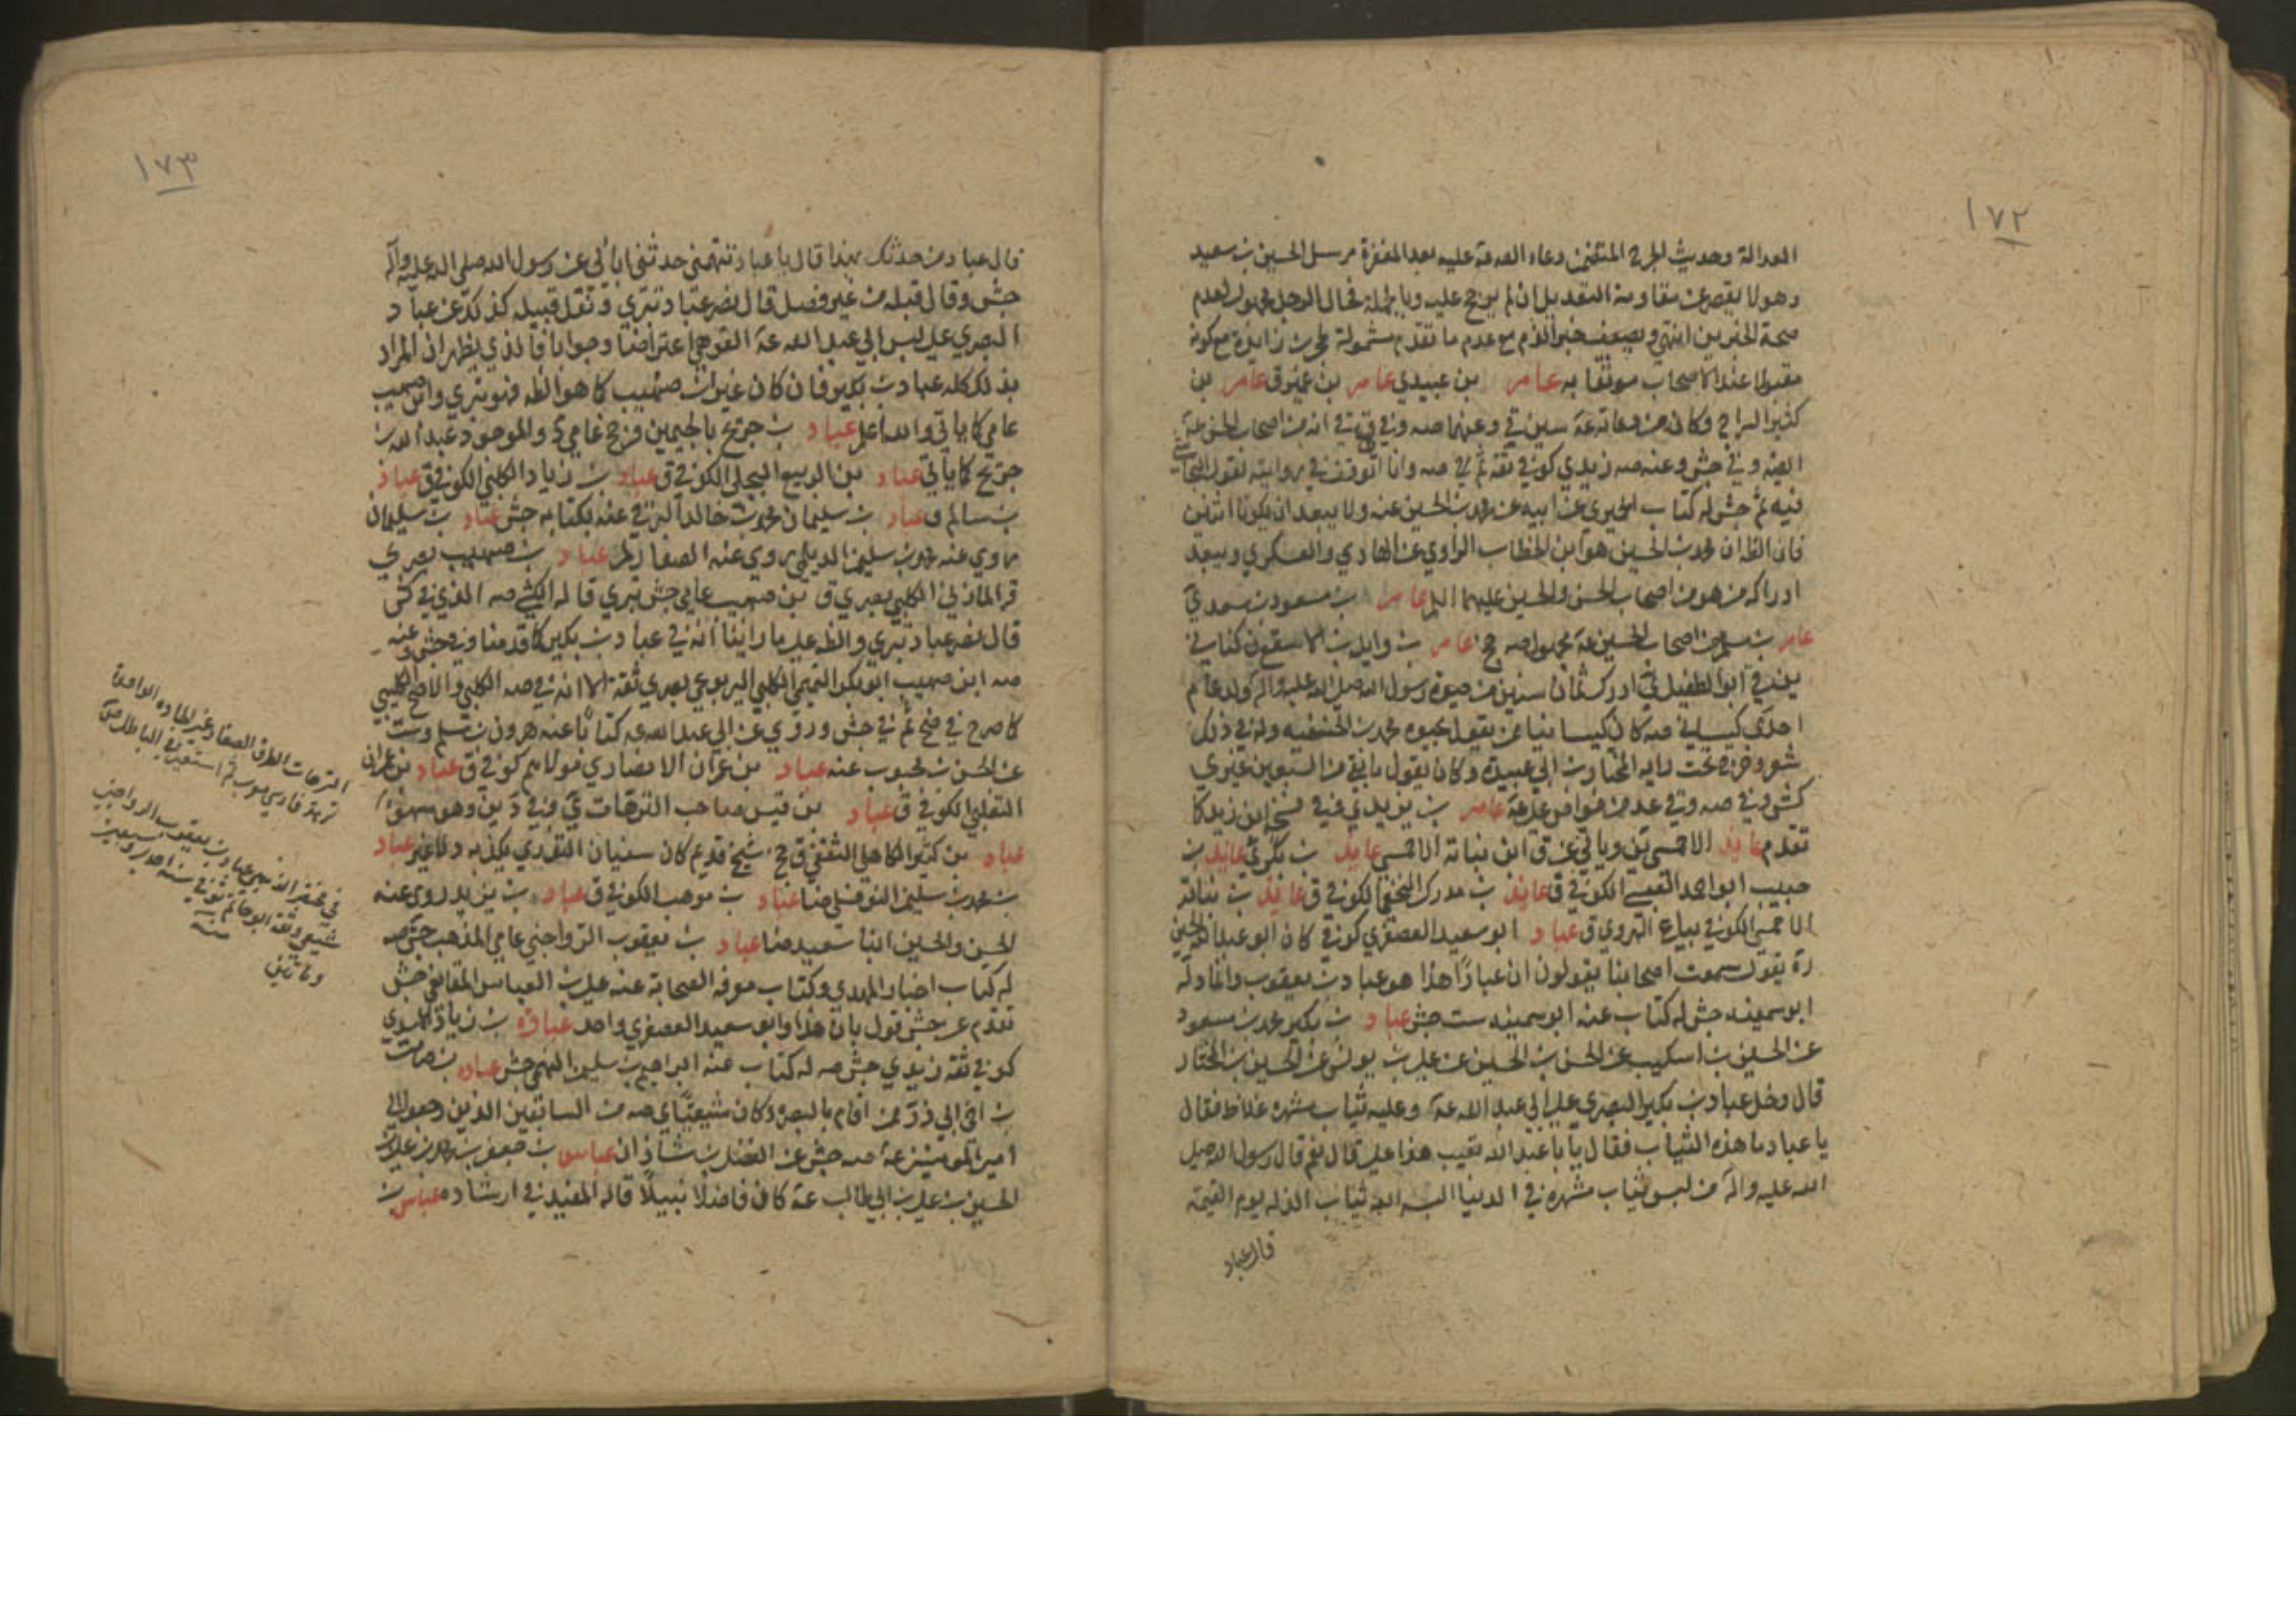 ١٧٢
العدالة وحديث الجرح المتضمن دعاء الصادق عليه بعدم المغفرة مرسل الحسين بن سعيد
وهو لا يقصر عن مقاومة التعديل ان لم يرجح عليه وبالجملة فحال الرجل مجهول لعدم
صحة الخبرين انتهى ويضعف خبر الذم مع عدم ما تقدم
مقبولا عند الاصحاب موثقا به عامر بن عبيدي عامر بن عامر بن
كثير السراج وكان من دعاته سين في
وفي جش وعنه صه زيدي كوفي ثقة ثم في صه وانا اتوقف في روايته لقول النجاشي
فيه ثم جش له كتاب الحبري عن ابيه عن محمد بن الحسين عنه ولا يبعد ان يكونا اثنين
فان الظ ان محمد بن الحسين هو ابن الخطاب الراوي عن الهادي والعسكري ويبعد
ادراكه من هو من اصحاب الحسن والحسين عليهما السلم عامر بن مسعود بن سعد
عامر بن مسلم من اصحاب الحسين مجهول صه عامر بن وايلة بن الاسقع كناني
ابو الطفيل ادرك ثمان سنين من حيوة رسول الله صلى الله عليه وآله ولد عام
احدى كيساني صه كان كيسانيا ممن يقول بحيوة محمد بن الحنفيه وله في ذلك
شعر وخرج تحت راية المختار بن ابي عبيدة وكان يقول ما بقي من السبعين غيري
كش وفي صه وفي عد من خواص علي عامر بن يزيد
تقدم عايذ الاحمسي وياتي عن ق ابن نباتة الاحمسي عايذ بن عايذ بن
حبيب ابو احمد العبسي الكوفي ق عايذ بن مدرك النخعي الكوفي ق عايذ بن نباتة
الاحمسي الكوفي بياع الهروي ق عباد ابو سعيد العصفري كوفي كان ابو عبد الله الحسين
ره يقول سمعت اصحابنا يقولون ان عبادًا هذا هو عباد بن يعقوب وانما دلّه
ابو سمينه جش له كتاب عنه ابو سمينه ست جش عباد بن بكير محمد بن مسعود
عن الحسين بن اسكيب عن الحسن بن الحسين عن علي بن يونس عن الحسين بن المختار
قال دخل عباد بن بكير البصري على ابي عبد الله وعليه ثياب شهرة غلاظ فقال
يا عباد ما هذه الثياب فقال يا با عبد الله تعيب هذا علي قال نعم قال رسول الله صلى
الله عليه وآله من لبس ثياب شهرة في الدنيا البسه الله ثياب الذل يوم القيمة
قال عباد
١٧٣
قال عباد من حدثك بهذا قال يا عباد تتهمني حدثني ابائي عن رسول الله صلى الله عليه وآله
جش وقال قبله من غير فصل قال نصر عباد بتري ونقل قبيله كذلك عن عباد
البصري على لبس ابي عبد الله القوهي اعتراضًا وجوابا فالذي يظهر ان المراد
بذلك كله عباد بن بكير فان كان غير ابن صهيب كما هو الظ فهو بتري وابن صهيب
عامي كما ياتي والله اعلم عباد بن جريح بالجيمين عامي والموجود عبد الله بن
جريح كما ياتي عباد بن الربيع البجلي الكوفي ق عباد بن زياد الكلبي الكوفي ق عباد
بن سالم ق عباد بن سليمان محمد بن خالد البرقي عنه بكتابه جش عباد بن سليمان
روى عنه محمد بن سليمان الديلمي روى عنه الصفار لم عباد بن صهيب بصري
قر المازني الكليبي بصري ق بن صهيب عامي جش بتري قاله الكشي صه الذي في كش
قال نصر عباد بتري والظ على ما راينا انه في عباد بن بكير كما قدمنا وفي جش وعنه
صه ابن صهيب ابو بكر التميمي الكليبي اليربوعي بصري ثقة الا انه في صه الكلبي والاصح الكليبي
كما صرح في ضح ثم في جش وروى عن ابي عبد الله كتابًا عنه هرون بن مسلم وست
عن الحسن بن محبوب عنه عباد بن عمران الانصاري مولاهم كوفي ق عباد بن عمران
التغلبي الكوفي ق عباد بن قيس صاحب الترهات
عباد بن كثير الكاهلي الثقفي ق شيخ قديم كان سفيان الثوري يكذبه عباد
بن محمد بن سليمان النوفلي ضا عباد بن موهب الكوفي ق عباد بن يزيد روى عنه
الحسن والحسين ابنا سعيد ضا عباد بن يعقوب الرواجني عامي المذهب جش صه
له كتاب اخبار المهدي وكتاب معرفة الصحابة عنه علي بن العباس المقانعي جش
تقدم عن جش قول بان هذا وابو سعيد العصفري واحد عبادة بن زياد الاسدي
كوفي ثقة زيدي جش صه له كتاب عنه ابراهيم بن سليمن النهمي جش عبادة بن صامت
بن اخي ابي ذر ممن اقام بالبصرة وكان شيعيًا صه من السابقين الذين رجعوا الى
امير المؤمنين صه جش عن الفضل بن شاذان عباس بن جعفر بن محمد بن علي بن
الحسين بن علي بن ابي طالب كان فاضلا نبيلًا قاله المفيد في ارشاده عباس بن
الترهات الطرق الصغار غير الجاده الواحدة
ترهة فارسي معرب ثم استعير في الباطل ص
في مختصر الذهبي عباد بن يعقوب الرواجني
شيعي وثقه ابو حاتم توفي سنة
وماتين